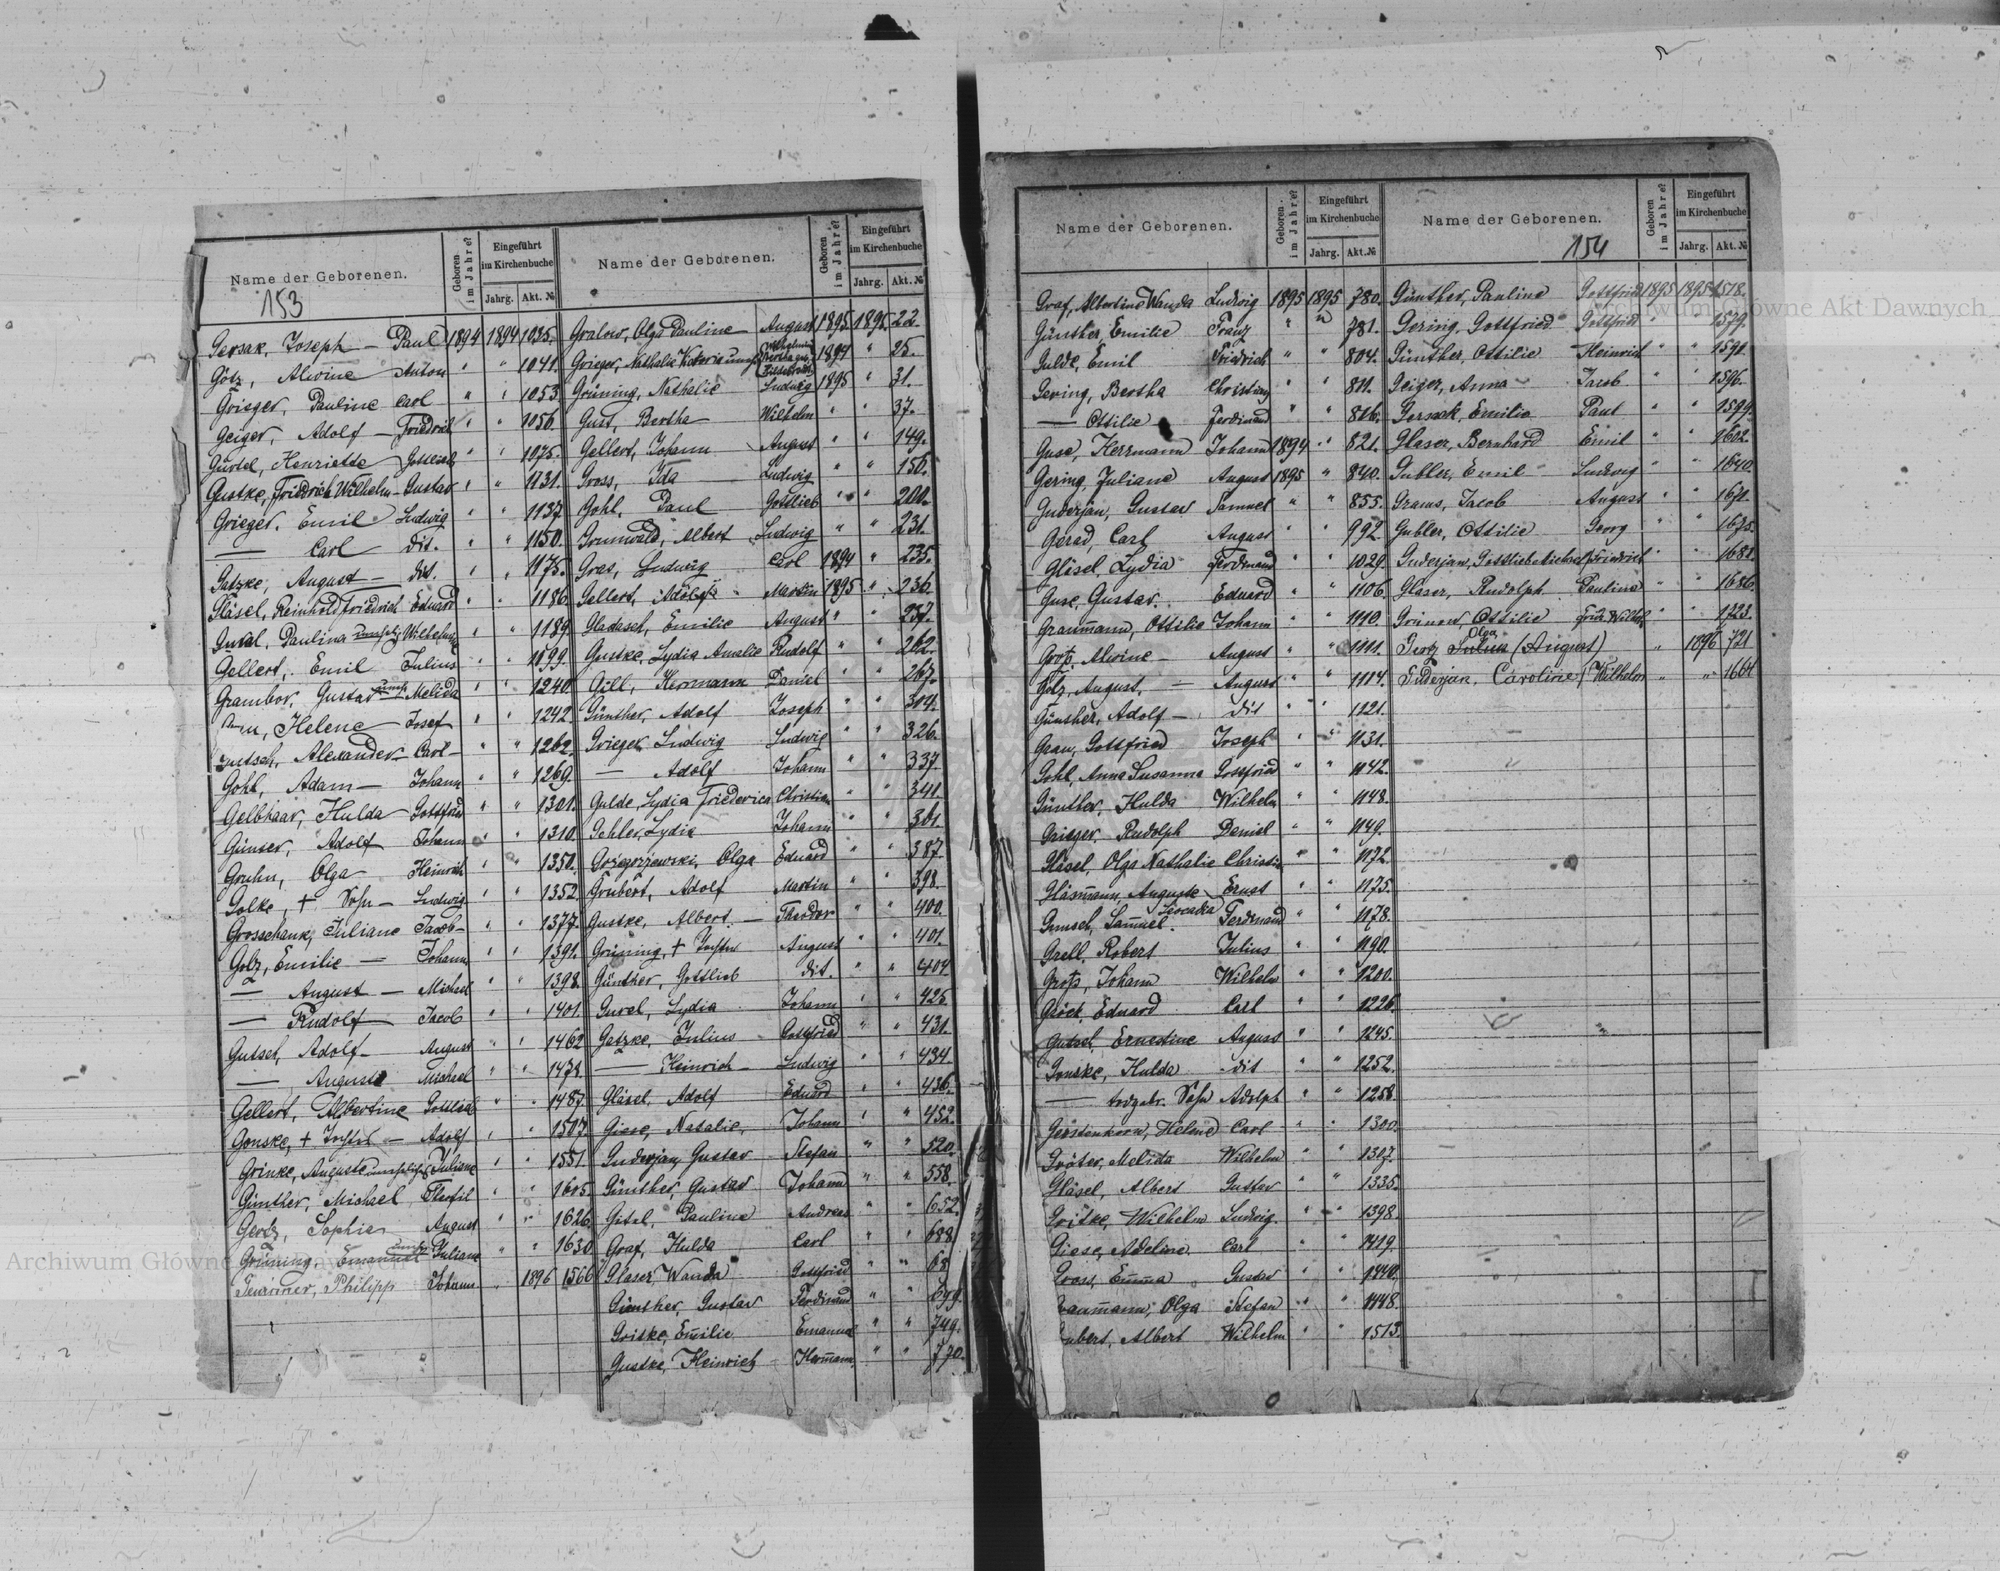 Name der Geborenen.
153
Geboren im Jahre?
Eingeführt im Kirchenbuche
Jahrg. Akt. №
Gersak, Joseph — Paul 1894 1894 1035.
Götz, Alwine Anton " " 1041.
Grieger, Pauline Carl " " 1053.
Geiger, Adolf — Friedrich " " 1056.
Gürtel, Henriette Gottlieb " " 1075.
Gustke, Friedrich Wilhelm - Gustav " " 1131.
Grieger, Emil Ludwig " " 1137.
— Carl dit. " " 1150.
Gatzke, August — dit. " " 1175.
Gläsel, Reinhold Friedrich Eduard " " 1186.
Guval, Paulina unehelich Wilhelmine " " 1189.
Gellert, Emil Julius " " 1199.
Grambor, Gustav uneh. Melida " " 1240.
Helene — Josef " " 1242.
Alexander Carl — " " 1262.
Gohl, Adam — Johann " " 1269.
Gelbhaar, Hulda Gottfried " " 1301.
Günser, Adolf Johann " " 1310.
Gruhn, Olga — Heinrich " " 1350.
Golke, + Sohn — Ludwig " " 1352.
Grosschank, Juliane Jacob — " " 1377.
Golz, Emilie — Johann " " 1391.
— August — Michael " " 1398.
— Rudolf — Jacob " " 1401.
Gutsch, Adolf — August " " 1462
— Auguste Michael " " 1478.
Gellert, Albertine Gottlieb " " 1487.
Gonske, + Tochter — Adolf " " 1507.
Grinke, Auguste unehelich Juliane " " 1551.
Günther, Michael Theofil " " 1605.
Gertz, Sophie August " " 1626.
Grüning, Emanuel uneh. Juliane " " 1630
Philipp Johann " 1896 1566
Name der Geborenen.
Geboren im Jahre?
Eingeführt im Kirchenbuche
Jahrg. Akt. №
Gralow, Olga Pauline — August 1895 1895 22.
Grieger, Nathalie 1894 " 25.
Grüning, Nathalie Ludwig 1895 " 31.
Gust, Bertha Wilhelm " " 37.
Gellert, Johann August " " 149.
Gross, Ida Ludwig " " 156.
Gohl, Paul Gottlieb " " 201.
Grunwald, Albert Ludwig " " 231.
Gras, Ludwig Carl 1894 " 235.
Gellert, Adolf Martin 1895 " 236.
Gladasch, Emilie August " " 237.
Gustke, Lydia Amalie Rudolf " " 262.
Gill, Hermann Daniel " " 267.
Günther, Adolf Joseph " " 304.
Grieger, Ludwig Ludwig " " 326.
— Adolf Johann " " 337
Gulde, Lydia Friederica Christian " " 341.
Gehler, Lydia Johann " " 361.
Grzegorzewski, Olga Eduard " " 387.
Grubert, Adolf Martin " " 398.
Gustke, Albert. — Theodor " " 400.
Grüning, + Tochter August " " 401.
Günther, Gottlieb dit. " " 404.
Guvel, Lydia Johann " " 425
Gatzke, Julius Gottfried " " 431.
— Heinrich — Ludwig " " 434.
Gläsel, Adolf Eduard " " 436.
Giese, Natalie, Johann " " 452.
Guderjan, Gustav Stefan " " 520.
Günther, Gustav Johann " " 558.
Gitel, Pauline Andreas " " 652.
Graf, Hulda Carl " " 688.
Glaser Wanda Gottfried " " 68
Günther, Gustav Ferdinand " " 699.
Gritke, Emilie Emanuel " " 749.
Gustke, Heinrich Hermann " " 770.
Name der Geborenen.
Geboren im Jahre?
Eingeführt im Kirchenbuche
Jahrg. Akt. №
Graf, Albertine Wanda Ludwig 1895 1895 780.
Günther, Emilie Franz " " 781.
Gulde, Emil Friedrich " " 804.
Gering, Bertha Christian " " 811.
— Ottilie Ferdinand " " 816.
Guse, Herrmann Johann 1894 " 821.
Gering, Juliane August 1895 " 840.
Guderjan, Gustav Samuel " " 855.
Gerad, Carl August " " 992.
Gläsel, Lydia Ferdinand " " 1029.
Guse, Gustav. Eduard " " 1106.
Graumann, Ottilie Johann " " 1110.
Groß, Alwine — August " " 1111.
Götz, August, — August " " 1114.
Günther, Adolf — dit " " 1121.
Grau, Gottfried Joseph " " 1131.
Gohl, Anna Susanna Gottfried " " 1142.
Günther, Hulda Wilhelm " " 1148.
Grieger, Rudolph Daniel " " 1149.
Gläsel, Olga Nathalie Christian " " 1172.
Gläsmann, Auguste Ernst " " 1175.
Leocadia
Gunsch, Samuel. Ferdinand " " 1178.
Grell, Robert Julius " " 1190.
Groß, Johann Wilhelm " " 1200.
Glöck, Eduard Carl " " 1226.
Gutsch, Ernestine August " " 1245.
Gonske, Hulda dit " " 1252.
— todgeb. Sohn Adolph " " 1258.
Gerstenkorn, Helene Carl " " 1300.
Gröter, Melida Wilhelm " " 1307.
Gläsel, Albert Gustav " " 1335.
Gritke, Wilhelm Ludwig. " " 1398.
Giese, Adeline. Carl " " 1419.
Gross, Emma Gustav " " 1440.
aumann, Olga Stefan " " 1448.
ubert, Albert Wilhelm " " 1513.
Name der Geborenen.
154
Geboren im Jahre?
Eingeführt im Kirchenbuche
Jahrg. Akt. №
Günther, Pauline Gottfried 1895 1895 1578.
Gering, Gottfried Gottfried " " 1579.
Günther, Ottilie Heinrich " " 1591.
Geiger, Anna Jacob " " 1596.
Gersak, Emilie Paul " " 1599.
Glaser, Bernhard Emil " " 1602.
Gubler, Emil Ludwig " " 1640.
Grams, Jacob August " " 1671.
Gubler, Ottilie Georg " " 1675.
Guderjan, Gottlieb Michael Friedrich " " 1681.
Glaser, Rudolph Pauline " " 1686.
Grinow, Ottilie Frid. Wilhelm " " 1723.
Olga
Gertz Julius (August) " 1896 721
Guderjan, Caroline (Wilhelm " " 1661
Archiwum Główne Akt Dawnych
Archiwum Główne Akt Dawnych